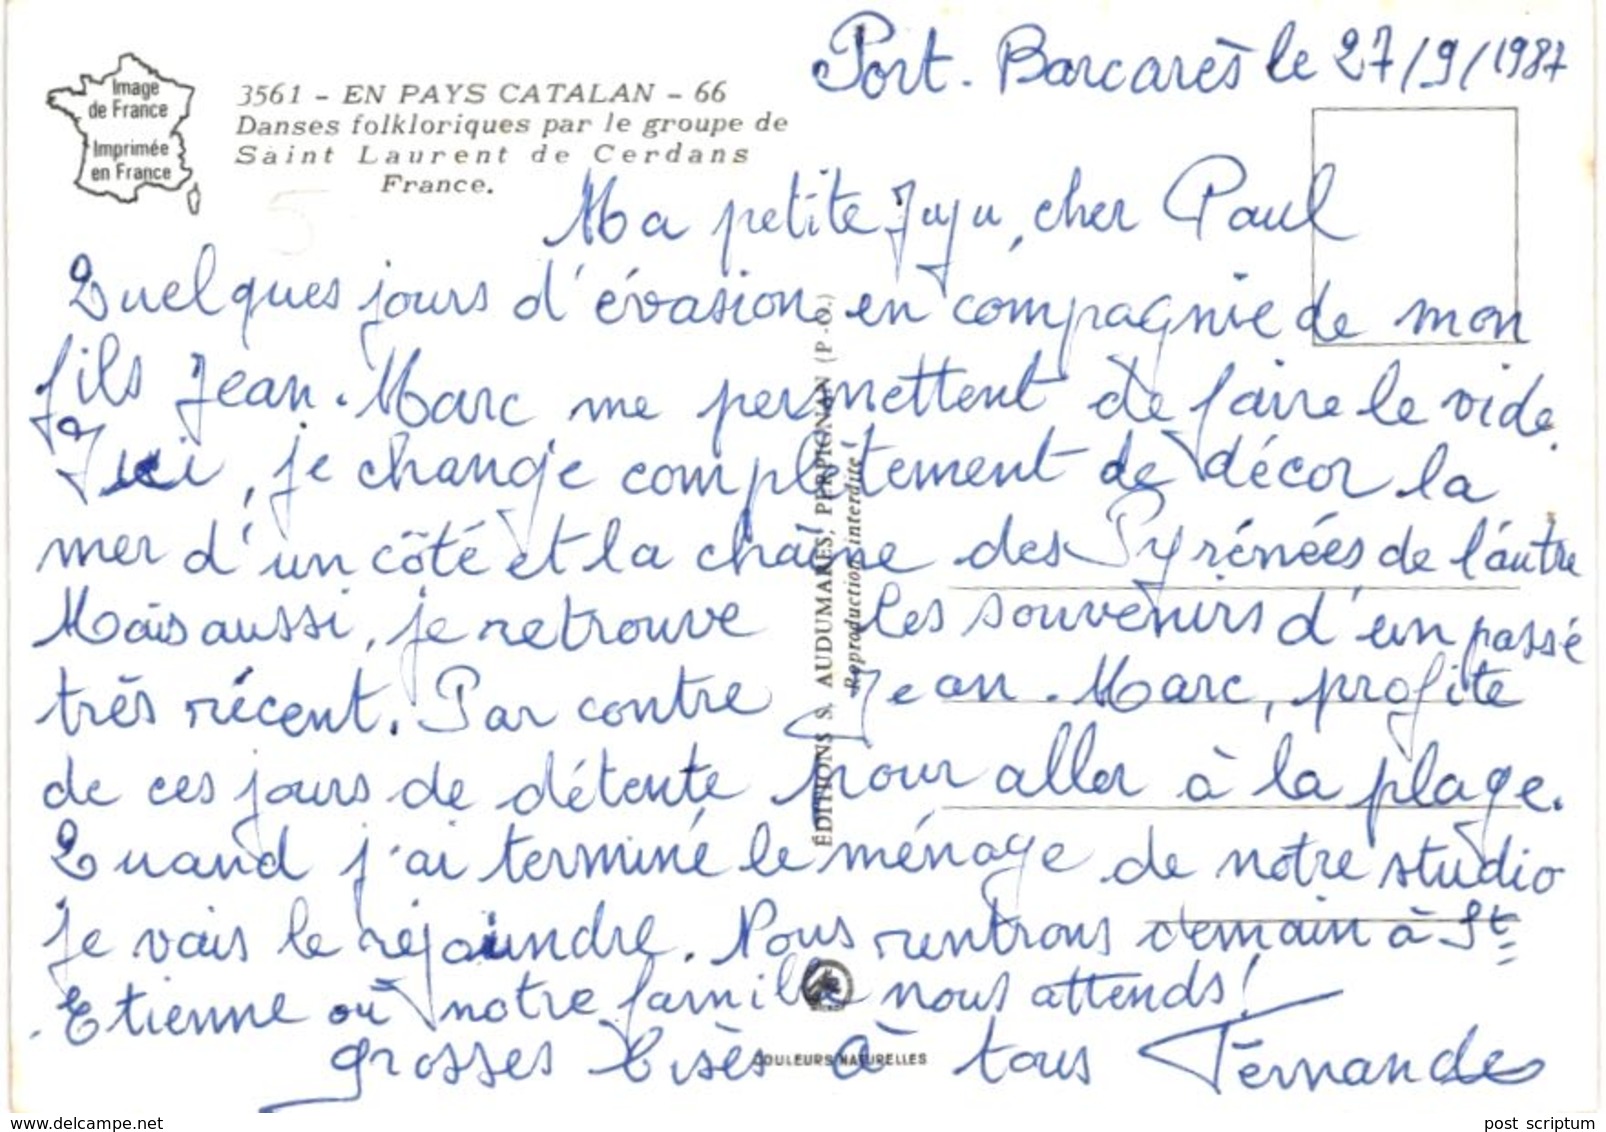 Port-Barcarès le 27/9/1987
Image
de France
Imprimée
en France
3561 - EN PAYS CATALAN - 66
Danses folkloriques par le groupe de
Saint Laurent de Cerdans
France.
Ma petite Juju, cher Paul
Quelques jours d'évasion en compagnie de mon
fils Jean-Marc me permettent de faire le vide.
Ici, je change complètement de décor la
mer d'un côté et la chaîne des Pyrénées de l'autre
Mais aussi, je retrouve les souvenirs d'un passé
très récent. Par contre Jean-Marc, profite
de ces jours de détente pour aller à la plage.
Quand j'ai terminé le ménage de notre studio
je vais le rejoindre. Nous rentrons demain à St
Etienne où notre famille nous attends!
grosses bisès à tous Fernande
ÉDITIONS S. AUDUMARES, PERPIGNAN (P.-O.)
Reproduction interdite
COULEURS NATURELLES
www.delcampe.net
post scriptum